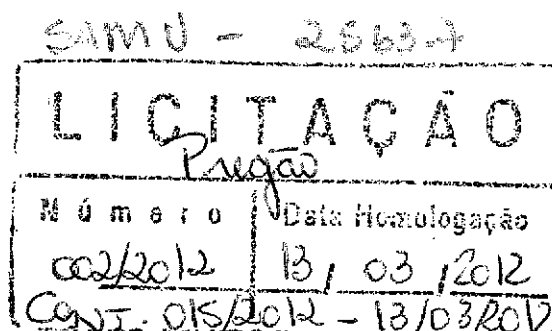 SAMU - 2563-7
LICITAÇÃO
Pregão
Número Data Homologação
002/2012 13/03/2012
CONT. 015/2012 - 13/03/2012